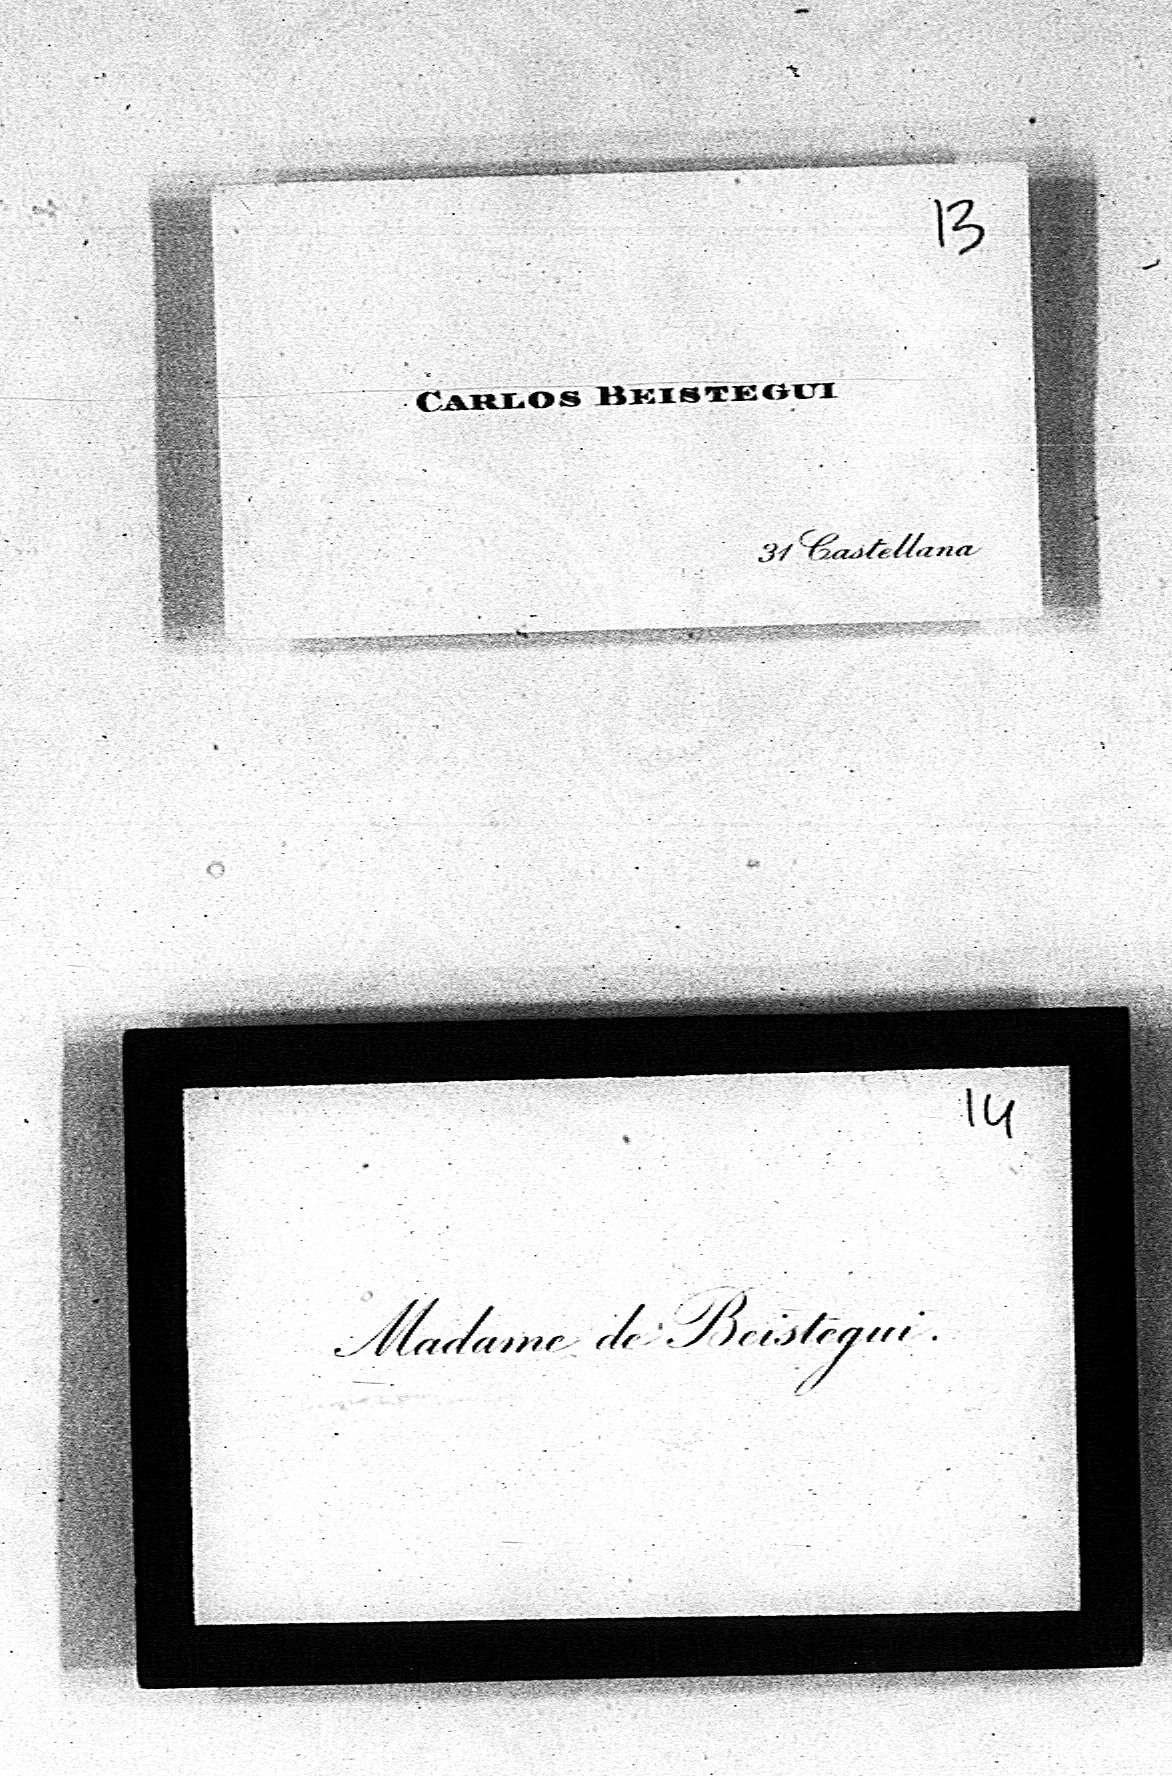 13
CARLOS BEISTEGUI
31 Castellana
14
Madame de Beistegui.